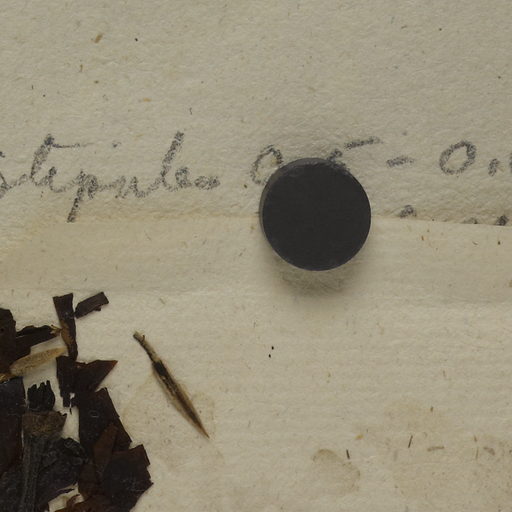 stipules 0.5 - 0.